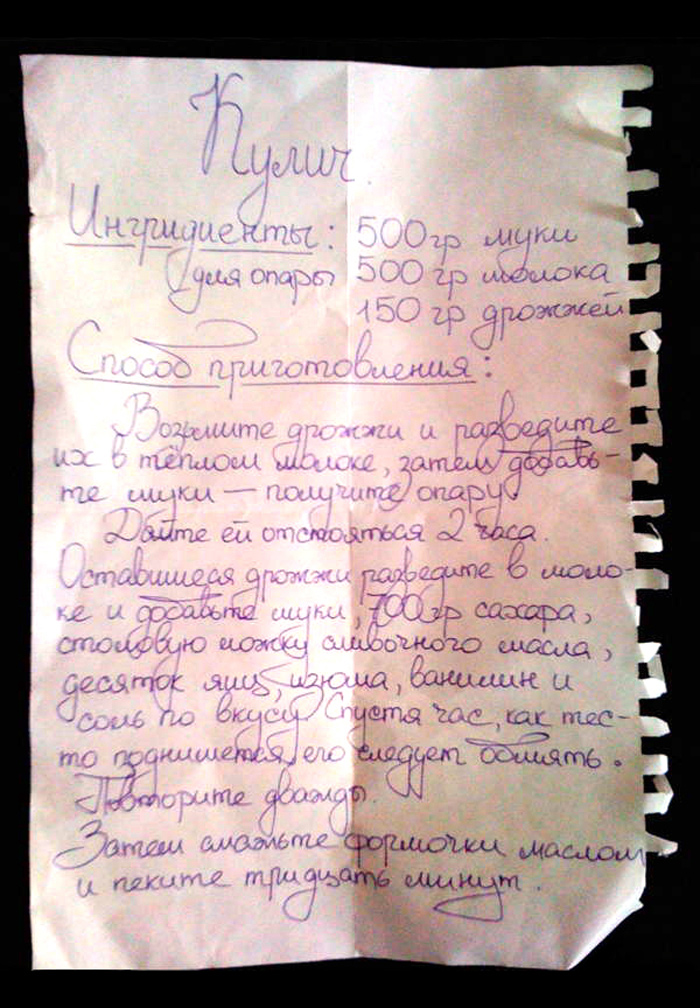 Кулич.
Ингридиенты: 500гр муки
(для опары 500 гр молока
150 гр дрожжей
Способ приготовления:
Возьмите дрожжи и разведите
их в тёплом молоке, затем добавь-
те муки — получите опару.
Дайте ей отстояться 2 часа.
Оставшиеся дрожжи разведите в моло-
ке и добавьте муки, 700гр сахара,
столовую ложку сливочного масла,
десяток яиц, изюма, ванилин и
соль по вкусу. Спустя час, как тес-
то поднимется, его следует обмять.
Повторите дважды.
Затем смажьте формочки маслом
и пеките тридцать минут.